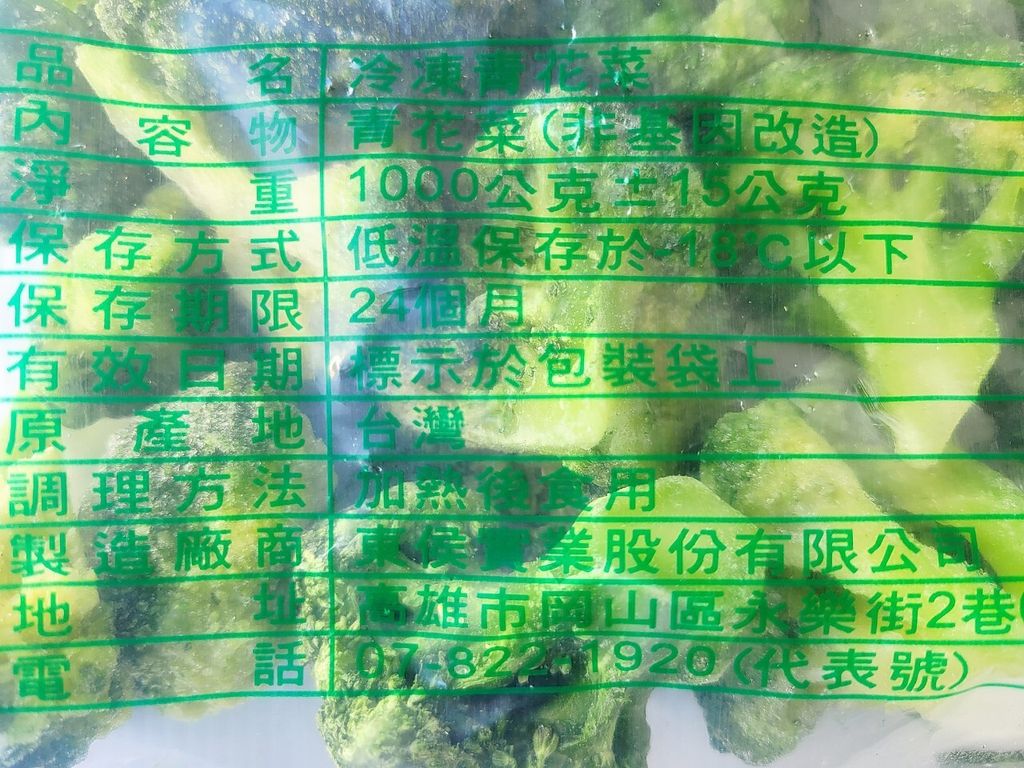 品名 冷凍青花菜
內容物 青花菜(非基因改造)
淨重 1000公克±15公克
保存方式 低溫保存於-18℃以下
保存期限 24個月
有效日期 標示於包裝袋上
原產地 台灣
調理方法 加熱後食用
製造廠商 東侯實業股份有限公司
地址 高雄市岡山區永樂街2巷
電話 07-822-1920(代表號)